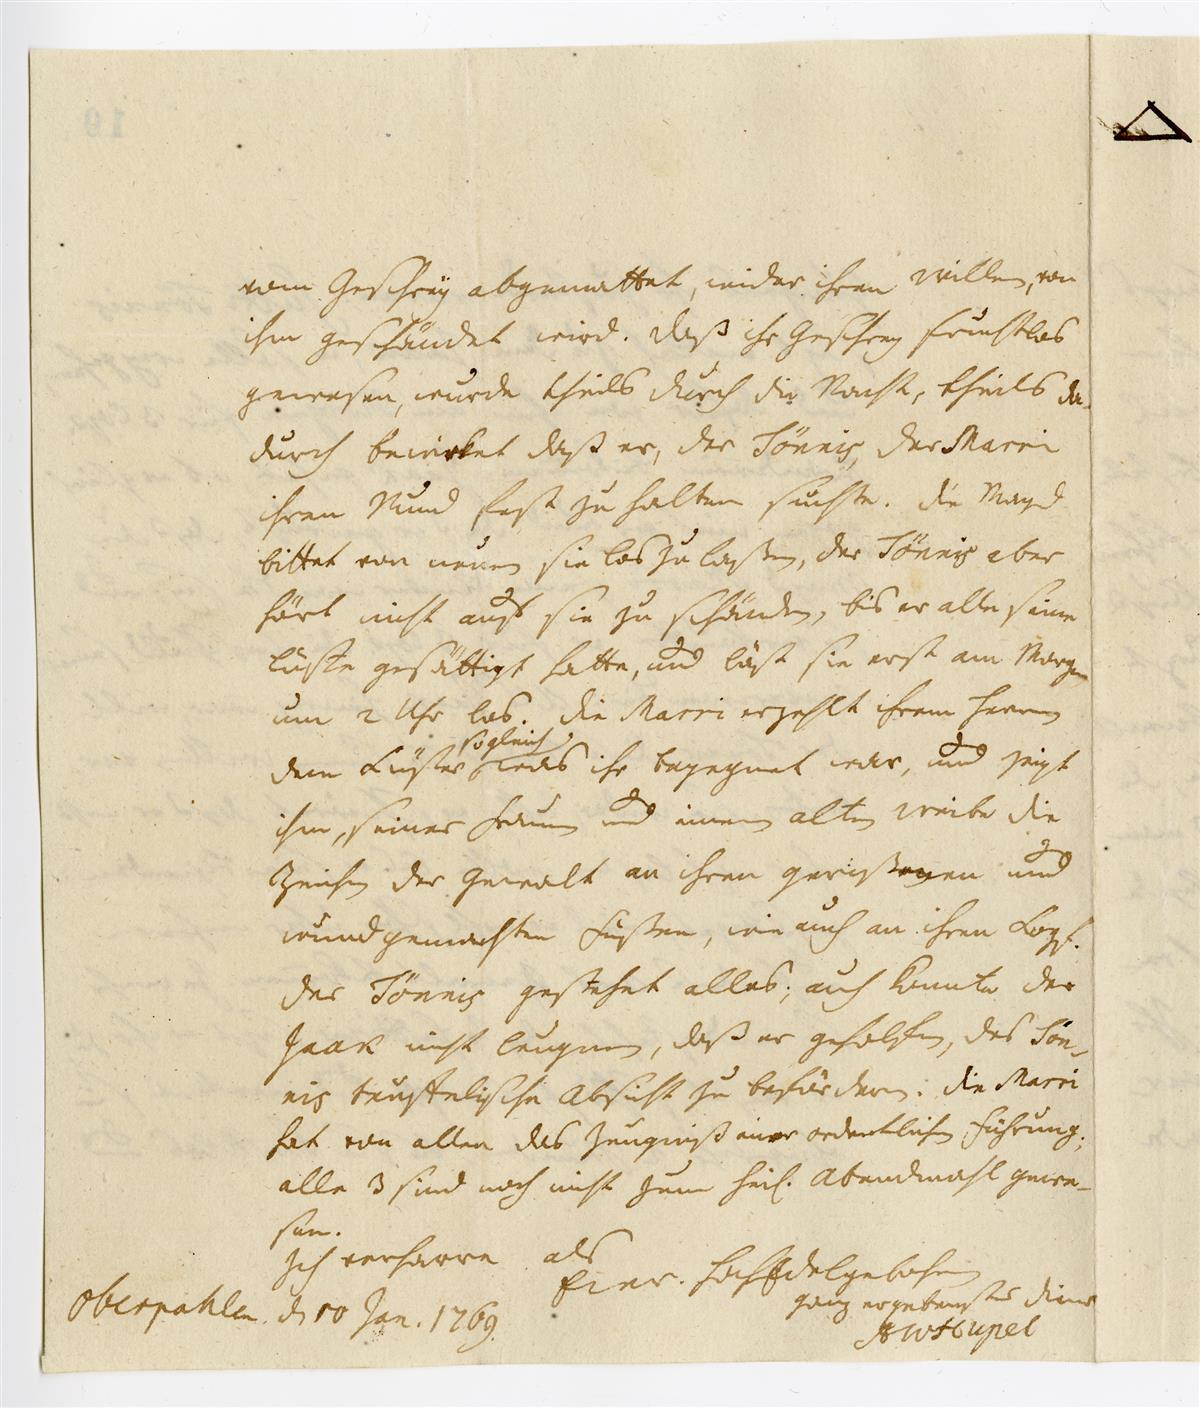 vom Geschrey abgemattet, wider ihren Willen, von
ihm geschändet wird. Daß ihr Geschrey fruchtlos
gewesen, wurde theils durch die Nacht, theils da-
durch bewirket daß er, der Tönnis, der Marri
ihren Mund fest zu halten suchte. Die Magd
bittet von neuen sie los zu laßen, der Tönnis aber
hört nicht auf sie zu schänden, bis er alle seine
Lüste gesättigt hatte, und läst sie erst am Morgen
um 2 Uhr los. Die Marri erzehlt ihrem Herrn
dem Küster sogleich was ihr begegnet war, und zeigt
ihm, seiner Frauen und einem alten Weibe die
Zeichen der Gewalt an ihren gerißenen und
wundgemachten Füßen, wie auch an ihren Kopf.
Der Tönnis gestehet alles; auch konnte der
Jaak nicht leugnen, daß er geholfen, des Tön-
nis teuffelische Absicht zu befördern. Die Marri
hat von allen das Zeugniß einer ordentlichen Führung;
alle 3 sind noch nicht zum heil. Abendmahl gewe-
sen.
Ich verharre als
Ewr. HochEdelgebohren
ganz ergebenster Diener
AWHupel
Oberpahlen d 10 Jan. 1769.